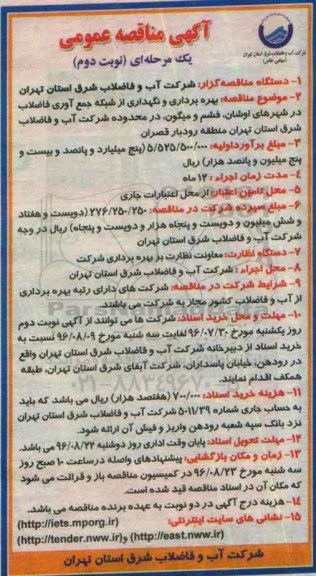 شرکت آب و فاضلاب شرق استان تهران
(سهامی خاص)
آگهی مناقصه عمومی
یک مرحله‌ای (نوبت دوم)
۱- دستگاه مناقصه‌گزار: شرکت آب و فاضلاب شرق استان تهران
۲- موضوع مناقصه: بهره برداری و نگهداری از شبکه جمع آوری فاضلاب
در شهرهای اوشان، فشم و میگون، در محدوده شرکت آب و فاضلاب
شرق استان تهران منطقه رودبار قصران
۳- مبلغ برآورداولیه: ۵/۵۲۵/۵۰۰/۰۰۰ (پنج میلیارد و پانصد و بیست و
پنج میلیون و پانصد هزار) ریال
۴- مدت زمان اجراء : ۱۲ ماه
۵- محل تامین اعتبار: از محل اعتبارات جاری
۶- مبلغ سپرده شرکت در مناقصه: ۲۷۶/۲۵۰/۲۵۰ (دویست و هفتاد
و شش میلیون و دویست و پنجاه هزار و دویست و پنجاه) ریال در وجه
شرکت آب و فاضلاب شرق استان تهران
۷- دستگاه نظارت: معاونت نظارت بر بهره برداری شرکت
۸- محل اجراء : شرکت آب و فاضلاب شرق استان تهران
۹- شرایط شرکت در مناقصه: شرکت های دارای رتبه بهره برداری
از آب و فاضلاب کشور مجاز به شرکت می باشند.
۱۰- مهلت و محل خرید اسناد: شرکت ها می توانند از آگهی نوبت دوم
روز یکشنبه مورخ ۹۶/۰۷/۳۰ لغایت سه شنبه مورخ ۹۶/۰۸/۰۹ نسبت به
خرید اسناد از دبیرخانه شرکت آب و فاضلاب شرق استان تهران واقع
در رودهن، خیابان پاسداران، شرکت آبفای شرق استان تهران، طبقه
همکف اقدام نمایند.
۱۱- هزینه خرید اسناد: ۷۰۰/۰۰۰ (هفتصد هزار) ریال می باشد که باید
به حساب جاری شماره ۵۰۱۱/۳۹ شرکت آب و فاضلاب شرق استان تهران
نزد بانک سپه شعبه رودهن واریز و فیش آن ارائه شود.
۱۲- مهلت تحویل اسناد: پایان وقت اداری روز دوشنبه ۹۶/۰۸/۲۲ می باشد.
۱۳- زمان و مکان بازگشایی: پیشنهادهای واصله درساعت ۱۰ صبح روز
سه شنبه مورخ ۹۶/۰۸/۲۳ در کمیسیون مناقصه باز و قرائت می شود
که مکان آن در اسناد مناقصه قید شده است.
۱۴- هزینه درج آگهی در دو نوبت به عهده برنده مناقصه می باشد.
۱۵- نشانی های سایت اینترنتی: (http://iets.mporg.ir)
(http://east.nww.ir) و (http://tender.nww.ir)
شرکت آب و فاضلاب شرق استان تهران